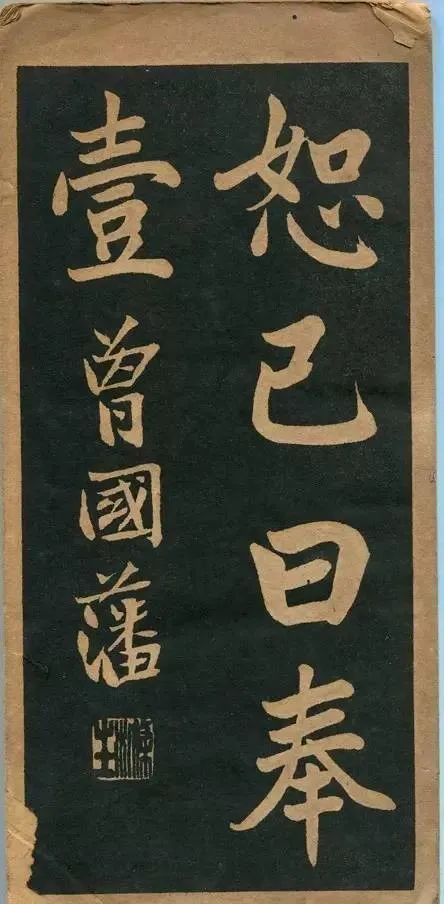 恕已曰奉
壹曾國藩